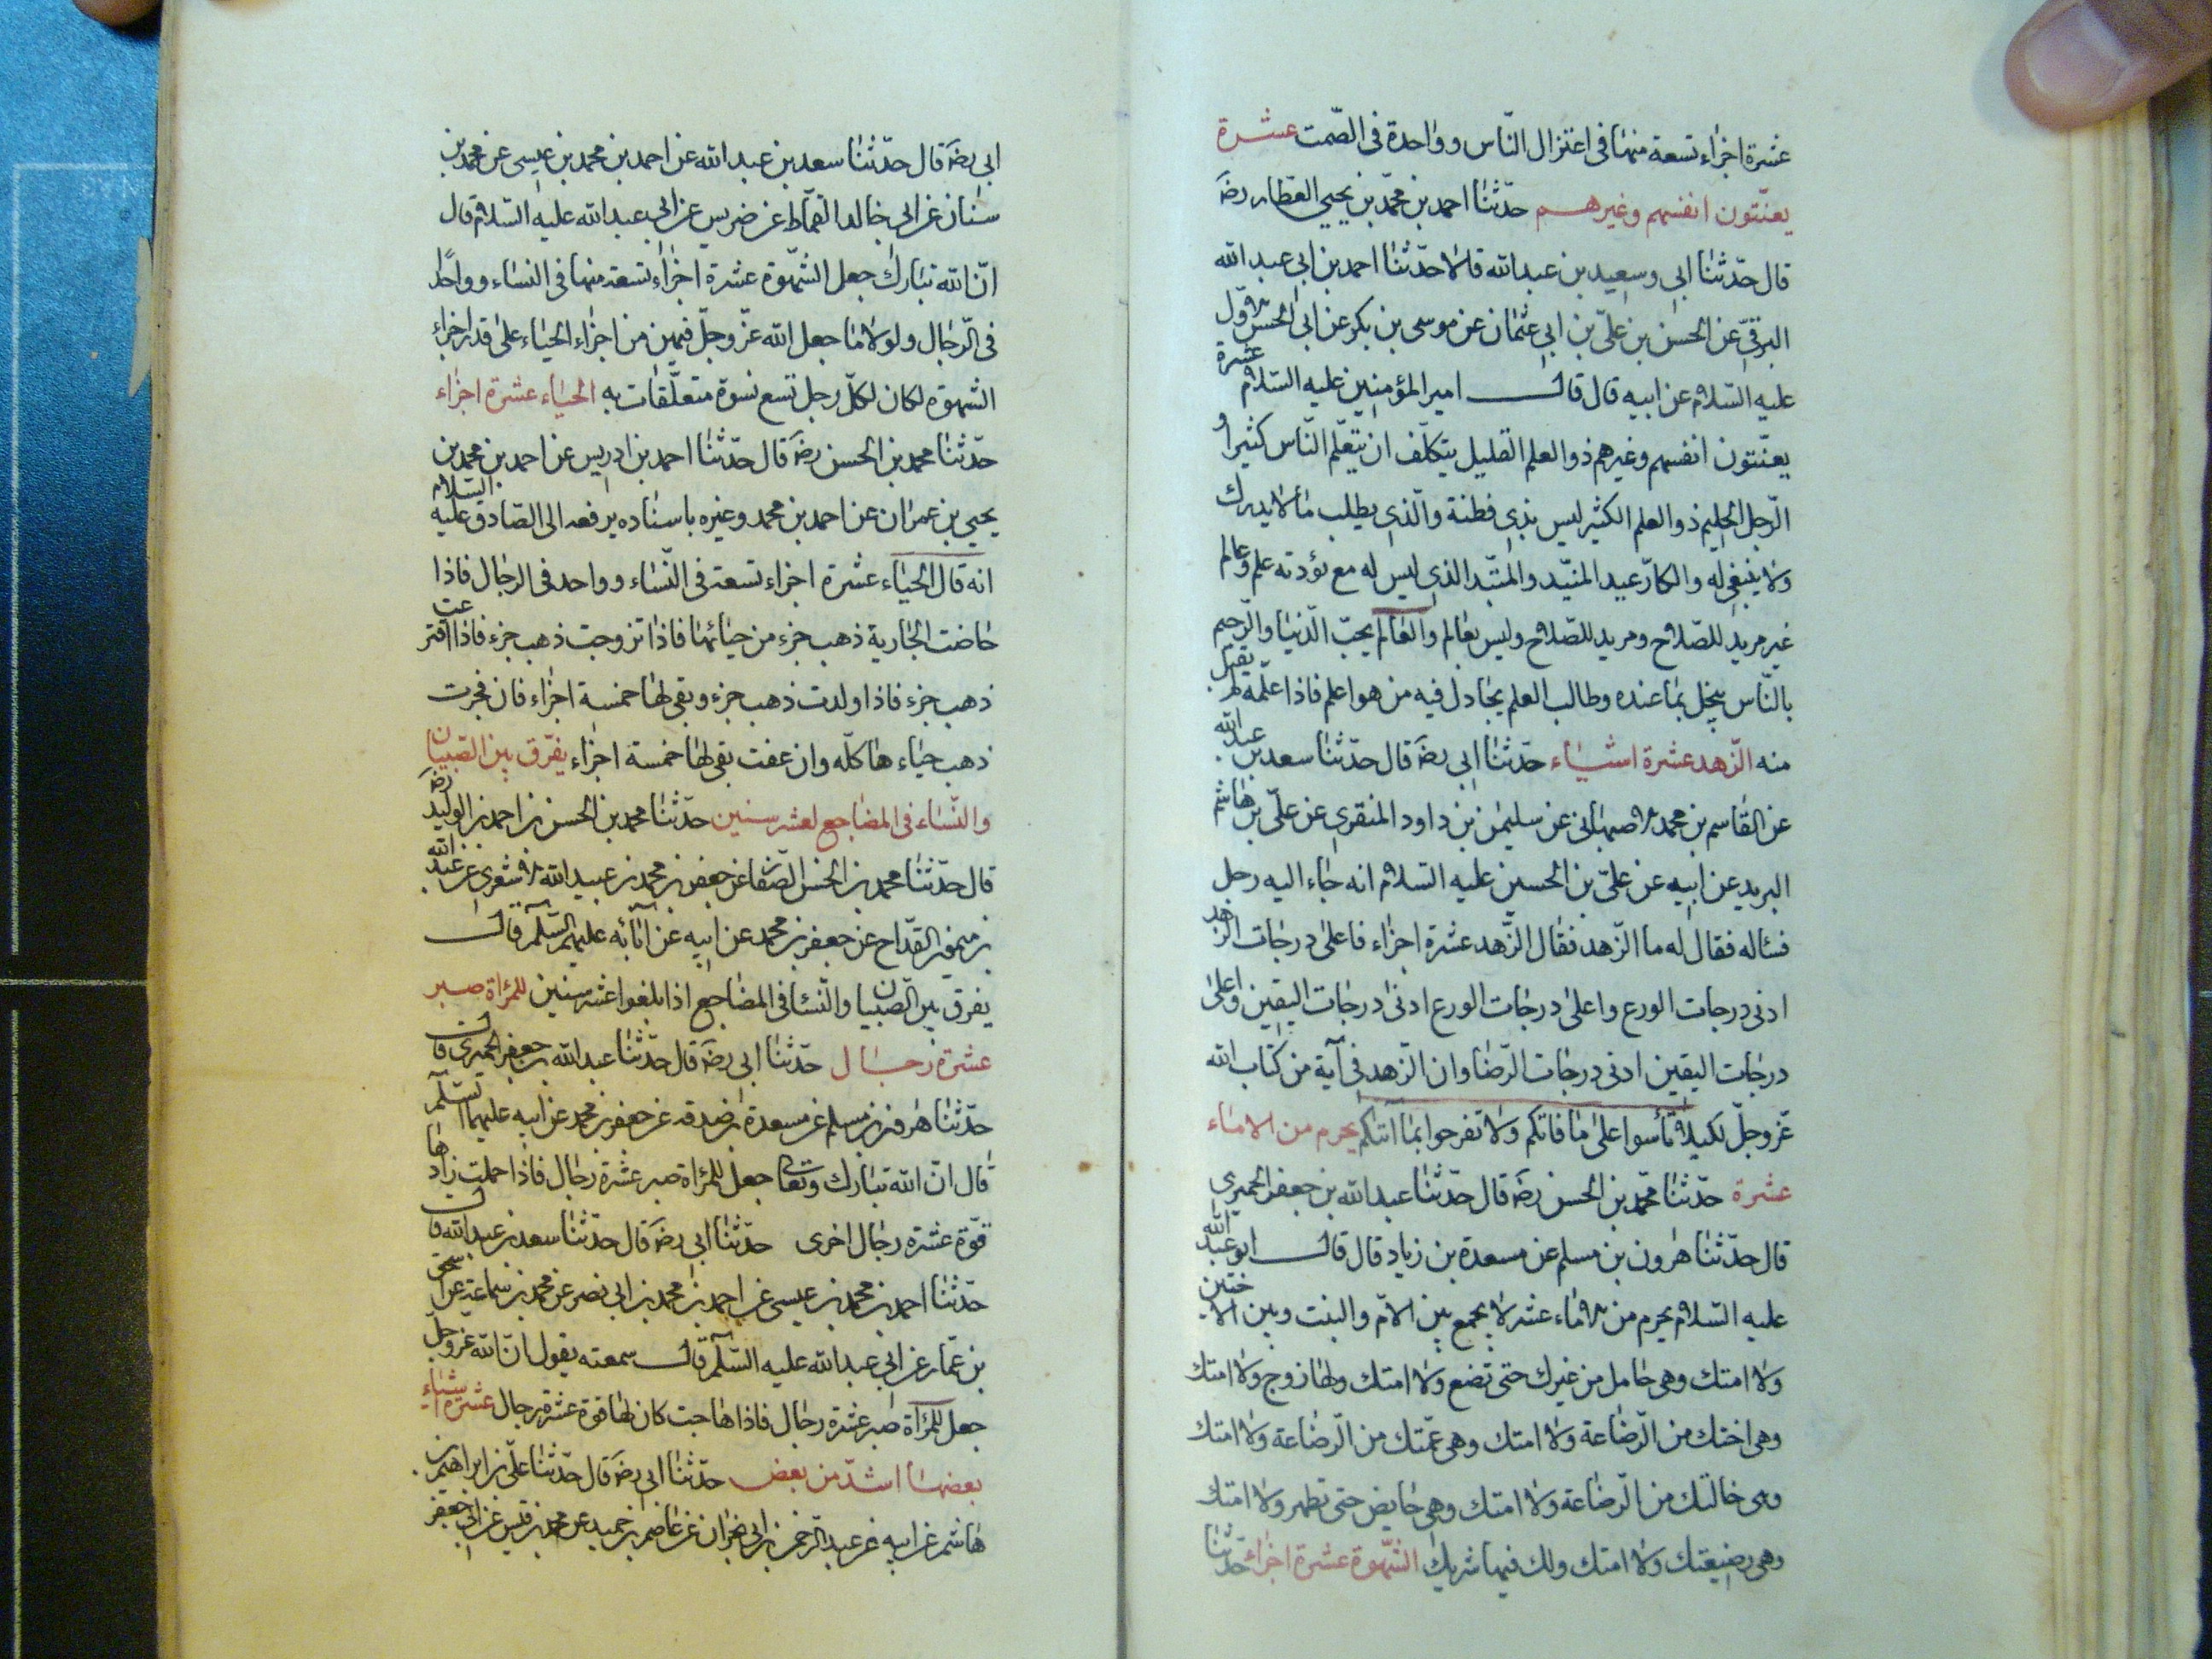 عشرة اجزاء تسعة منها فى اعتزال النّاس وواحدة فى الصّمت عشرة
يعنّتون انفسهم وغيرهم حدّثنا احمد بن محمّد بن يحيى العطار رضه
قال حدّثنا ابى وسعيد بن عبد الله قالا حدّثنا احمد بن ابى عبد الله
البرقىّ عن الحسن بن علىّ بن ابى عثمان عن موسى بن بكر عن ابى الحسن الاوّل
عليه السّلام عن ابيه قال قال امير المؤمنين عليه السّلام عشرة
يعنّتون انفسهم وغيرهم ذو العلم القليل يتكلّف ان يتعلّم النّاس كثيرا و
الرّجل الحليم ذو العلم الكثير ليس بذى فطنة والّذى يطلب ما لا يدرك
ولا ينبغى له والكادّ عبيد المتيّد والمتئّد الذى ليس له مع تؤدته علم وعالم
غير مريد للصّلاح ومريد للصّلاح وليس بعالم والعالم يحبّ الدّنيا والرّحيم
بالنّاس يبخل بما عنده وطالب العلم يجادل فيه من هو اعلم فاذا علّمه لم يقبل
منه الزّهد عشرة اشياء حدّثنا ابى رضه قال حدّثنا سعد بن عبد الله
عن القاسم بن محمد الاصبهانى عن سليمن بن داود المنقرى عن علىّ بن هاشم
البريد عن ابيه عن علىّ بن الحسين عليه السّلام انه جاء اليه رجل
فسئاله فقال له ما الزّهد فقال الزّهد عشرة اجزاء فاعلى درجات الزهد
ادنى درجات الورع واعلى درجات الورع ادنى درجات اليقين واعلى
درجات اليقين ادنى درجات الرّضا وان الزّهد فى آية من كتاب الله
عزّ وجلّ لكيلا تأسوا على ما فاتكم ولا تفرحوا بما آتيكم يحرم من الاماء
عشرة حدّثنا محمّد بن الحسن رضه قال حدّثنا عبد الله بن جعفر الحميرى
قال حدّثنا هرون بن مسلم عن مسعدة بن زياد قال قال ابو عبد الله
عليه السّلام يحرم من الاماء عشر لا يجمع بين الامّ والبنت وبين الاختين
ولا امتك وهى حامل من غيرك حتى تضع ولا امتك ولها زوج ولا امتك
وهى اختك من الرّضاعة ولا امتك وهى عمّتك من الرّضاعة ولا امتك
وهى خالتك من الرّضاعة ولا امتك وهى حايض حتى تطهر ولا امتك
وهى رضيعتك ولا امتك ولك فيها شريك الشّهوة عشرة اجزاء حدّثنا
ابى رضه قال حدّثنا سعد بن عبد الله عن احمد بن محمد بن عيسى عن محمد بن
سنان عن ابى خالد القمّاط عن ضريس عن ابى عبد الله عليه السّلام قال
انّ الله تبارك جعل الشّهوة عشرة اجزاء تسعة منها فى النساء وواحدا
فى الرّجال ولولا ما جعل الله عزّ وجلّ فيهن من اجزاء الحياء على قدر اجزاء
الشهوة لكان لكلّ رجل تسع نسوة متعلّقات به الحياء عشرة اجزاء
حدّثنا محمد بن الحسن رضه قال حدّثنا احمد بن ادريس عن احمد بن محمد بن
يحيى بن عمران عن احمد بن محمد وغيره باسناده يرفعه الى الصّادق عليه السلام
انه قال الحياء عشرة اجزاء تسعة فى النّساء وواحد فى الرجال فاذا
حاضت الجارية ذهب جزء من حيائها فاذا تزوجت ذهب جزء فاذا افترعت
ذهب جزء فاذا ولدت ذهب جزء وبقى لها خمسة اجزاء فان فجرت
ذهب حياءها كلّه وان عفت بقى لها خمسة اجزاء يفرّق بين الصّبيان
والنّساء فى المضاجع لعشر سنين حدّثنا محمد بن الحسن بن احمد بن الوليد رضه
قال حدّثنا محمد بن الحسن الصّفا عن جعفر بن محمد بن عبيد الله الاشعرى عن عبد الله
بن ميمون القدّاح عن جعفر بن محمد عن ابيه عن آبائه عليهم السّلم قال
يفرق بين الصّبيان والنّساء فى المضاجع اذا بلغوا عشر سنين للمرأة صبر
عشرة رجال حدّثنا ابى رضه قال حدّثنا عبد الله بن جعفر الحميرى قال
حدّثنا هرون بن مسلم عن مسعدة بن صدقه عن جعفر بن محمد عن ابيه عليهما السّلم
قال انّ الله تبارك وتعالى جعل للمرأة صبر عشرة رجال فاذا حملت زادها
قوّة عشرة رجال اخرى حدّثنا ابى رضه قال حدّثنا سعد بن عبد الله قال
حدّثنا احمد بن محمد بن عيسى عن احمد بن محمد بن ابى نصر عن محمد بن سماعة عن اسحق
بن عمّار عن ابى عبد الله عليه السّلم قال سمعته يقول انّ الله عزّ وجلّ
جعل للمرأة صبر عشرة رجال فاذا هاجت كان لها قوة عشرة رجال عشرة اشياء
بعضها اشدّ من بعض حدّثنا ابى رضه قال حدّثنا علىّ بن ابراهيم بن
هاشم عن ابيه عن عبد الرّحمن بن ابى نجران عن عاصم بن حميد عن محمد بن قيس عن ابى جعفر